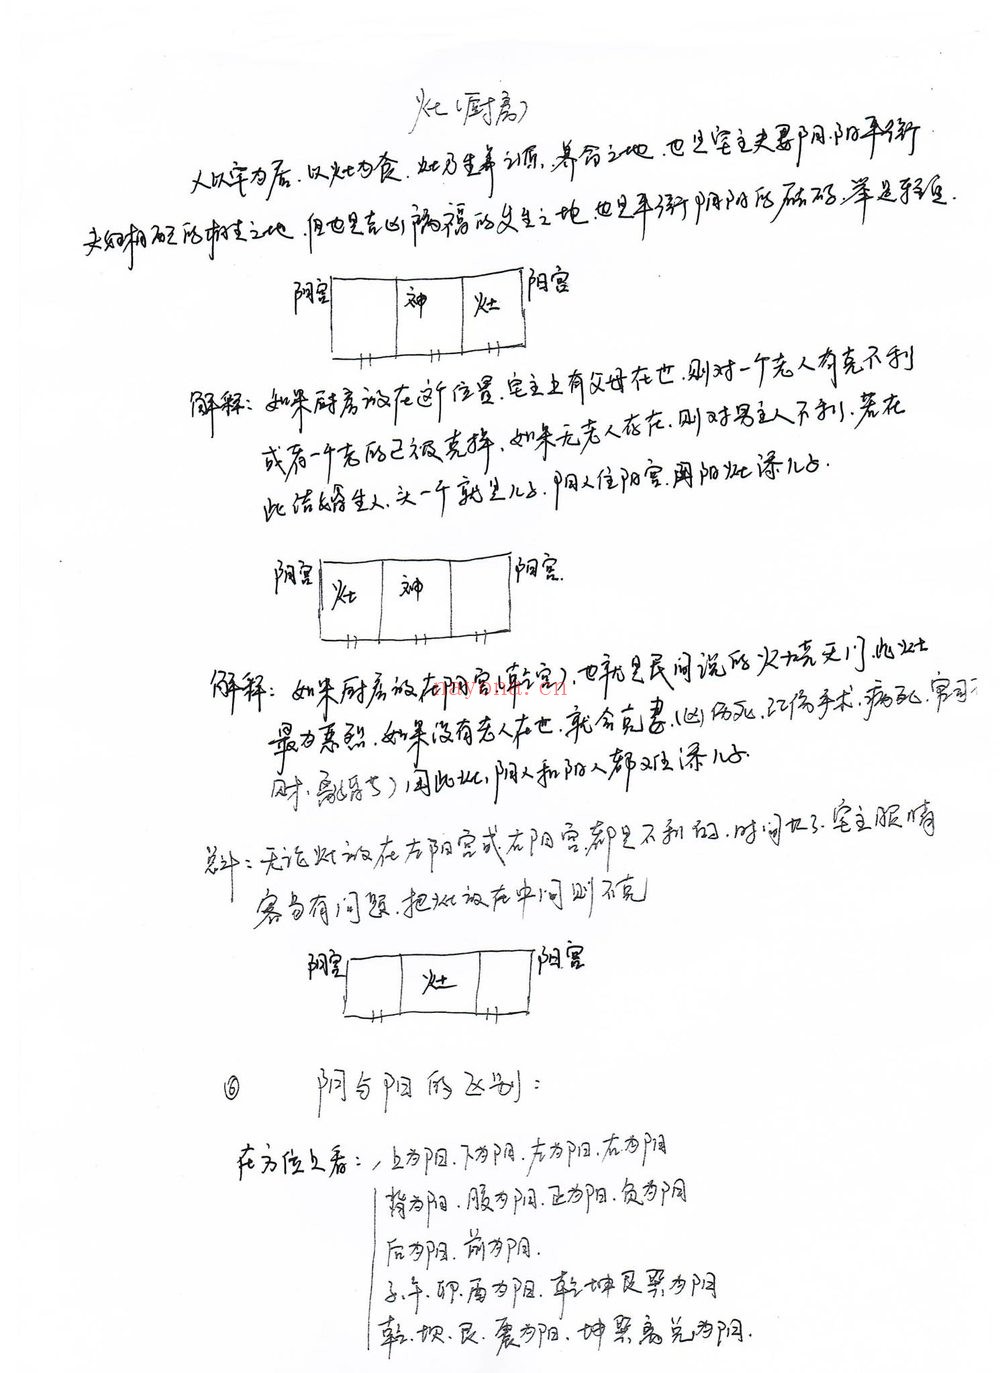 灶(厨房)
人以宅为居,以灶为食,灶乃生养之源,养命之地,也是宅主夫妻阴阳平衡
夫妇相配的相生之地,但也是吉凶祸福的发生之地,也是平衡阴阳的砝码,举足轻重.
阴宫 神 灶 阳宫
解释:如果厨房放在这个位置,宅主上有父母在世,则对一个老人有克不利
或者一个老的已被克掉,如果无老人存在,则对男主人不利,若在
此结婚生人,头一个就是儿子,阳人住阳宫,用阳灶添儿子.
阴宫 灶 神 阳宫
解释:如果厨房放在阴宫(乾宫),也就是民间说的火烧天门,此灶
最为惠烈,如果没有老人在世,就会克妻,(凶伤死,红伤手术,病死,官司
财,离婚等)用此灶,阴人和阳人都又住添儿子.
nayona.cn
总斗:无论灶放在左阳宫或右阴宫,都是不利的,时间长了,宅主眼睛
容易有问题,把灶放在中间则不克
阴宫 灶 阳宫
⑥ 阴与阳的区别:
在方位上看:上为阳、下为阴、左为阳、右为阴
背为阳、腹为阴、正为阳、负为阴
后为阳、前为阴.
子、午、卯、酉为阳、乾坤艮巽为阴
乾、坎、艮、震为阳、坤巽离兑为阴.